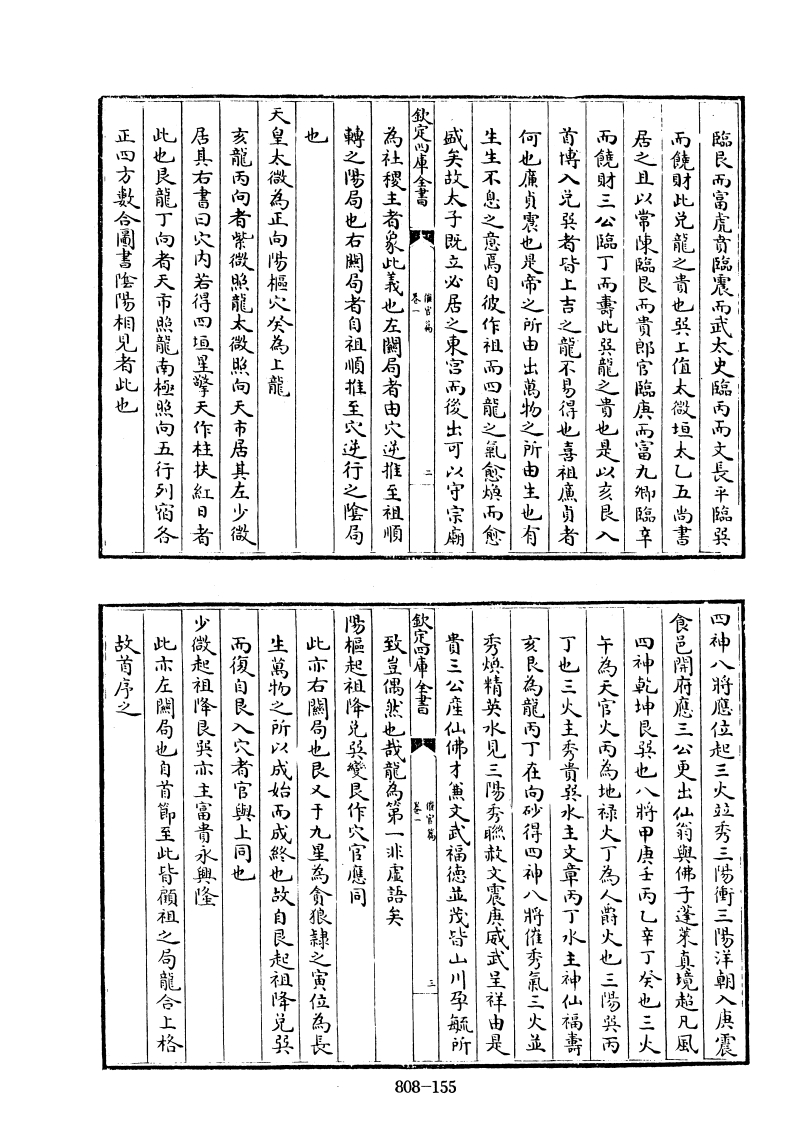 臨艮而富虎賁臨震而武太史臨丙而文長平臨巽
而饒財此兑龍之貴也巽上值太微垣太乙五尚書
居之且以常陳臨艮而貴郎官臨庚而富九卿臨辛
而饒財三公臨丁而壽此巽龍之貴也是以亥艮入
首博入兑巽者皆上吉之龍不易得也喜祖廉貞者
何也廉貞震也是帝之所由出萬物之所由生也有
生生不息之意焉自彼作祖而四龍之氣愈煥而愈
盛矣故太子既立必居之東宮而後出可以守宗廟
欽定四庫全書
催官篇
卷一
二
為社稷主者象此義也左關局者由穴逆推至祖順
轉之陽局也右關局者自祖順推至穴逆行之隂局
也
天皇太微為正向陽樞穴癸為上龍
亥龍丙向者紫微照龍太微照向天市居其左少微
居其右書曰穴内若得四垣星擎天作柱扶紅日者
此也艮龍丁向者天市照龍南極照向五行列宿各
正四方數合圖書隂陽相見者此也
四神八將應位起三火竝秀三陽衝三陽洋朝入庚震
食邑開府應三公更出仙翁與佛子蓬萊真境超凡風
四神乾坤艮巽也八將甲庚壬丙乙辛丁癸也三火
午為天官火丙為地禄火丁為人爵火也三陽巽丙
丁也三火主秀貴巽水主文章丙丁水主神仙福壽
亥艮為龍丙丁在向砂得四神八將催秀氣三火並
秀煥精英水見三陽秀聯赦文震庚威武呈祥由是
貴三公産仙佛才兼文武福德並茂皆山川孕毓所
欽定四庫全書
催官篇
卷一
三
致豈偶然也哉龍為第一非虚語矣
陽樞起祖降兑巽變艮作穴官應同
此亦右關局也艮又于九星為貪狼隷之寅位為長
生萬物之所以成始而成終也故自艮起祖降兑巽
而復自艮入穴者官與上同也
少微起祖降艮巽亦主富貴永興隆
此亦左關局也自首節至此皆顧祖之局龍合上格
故首序之
808-155